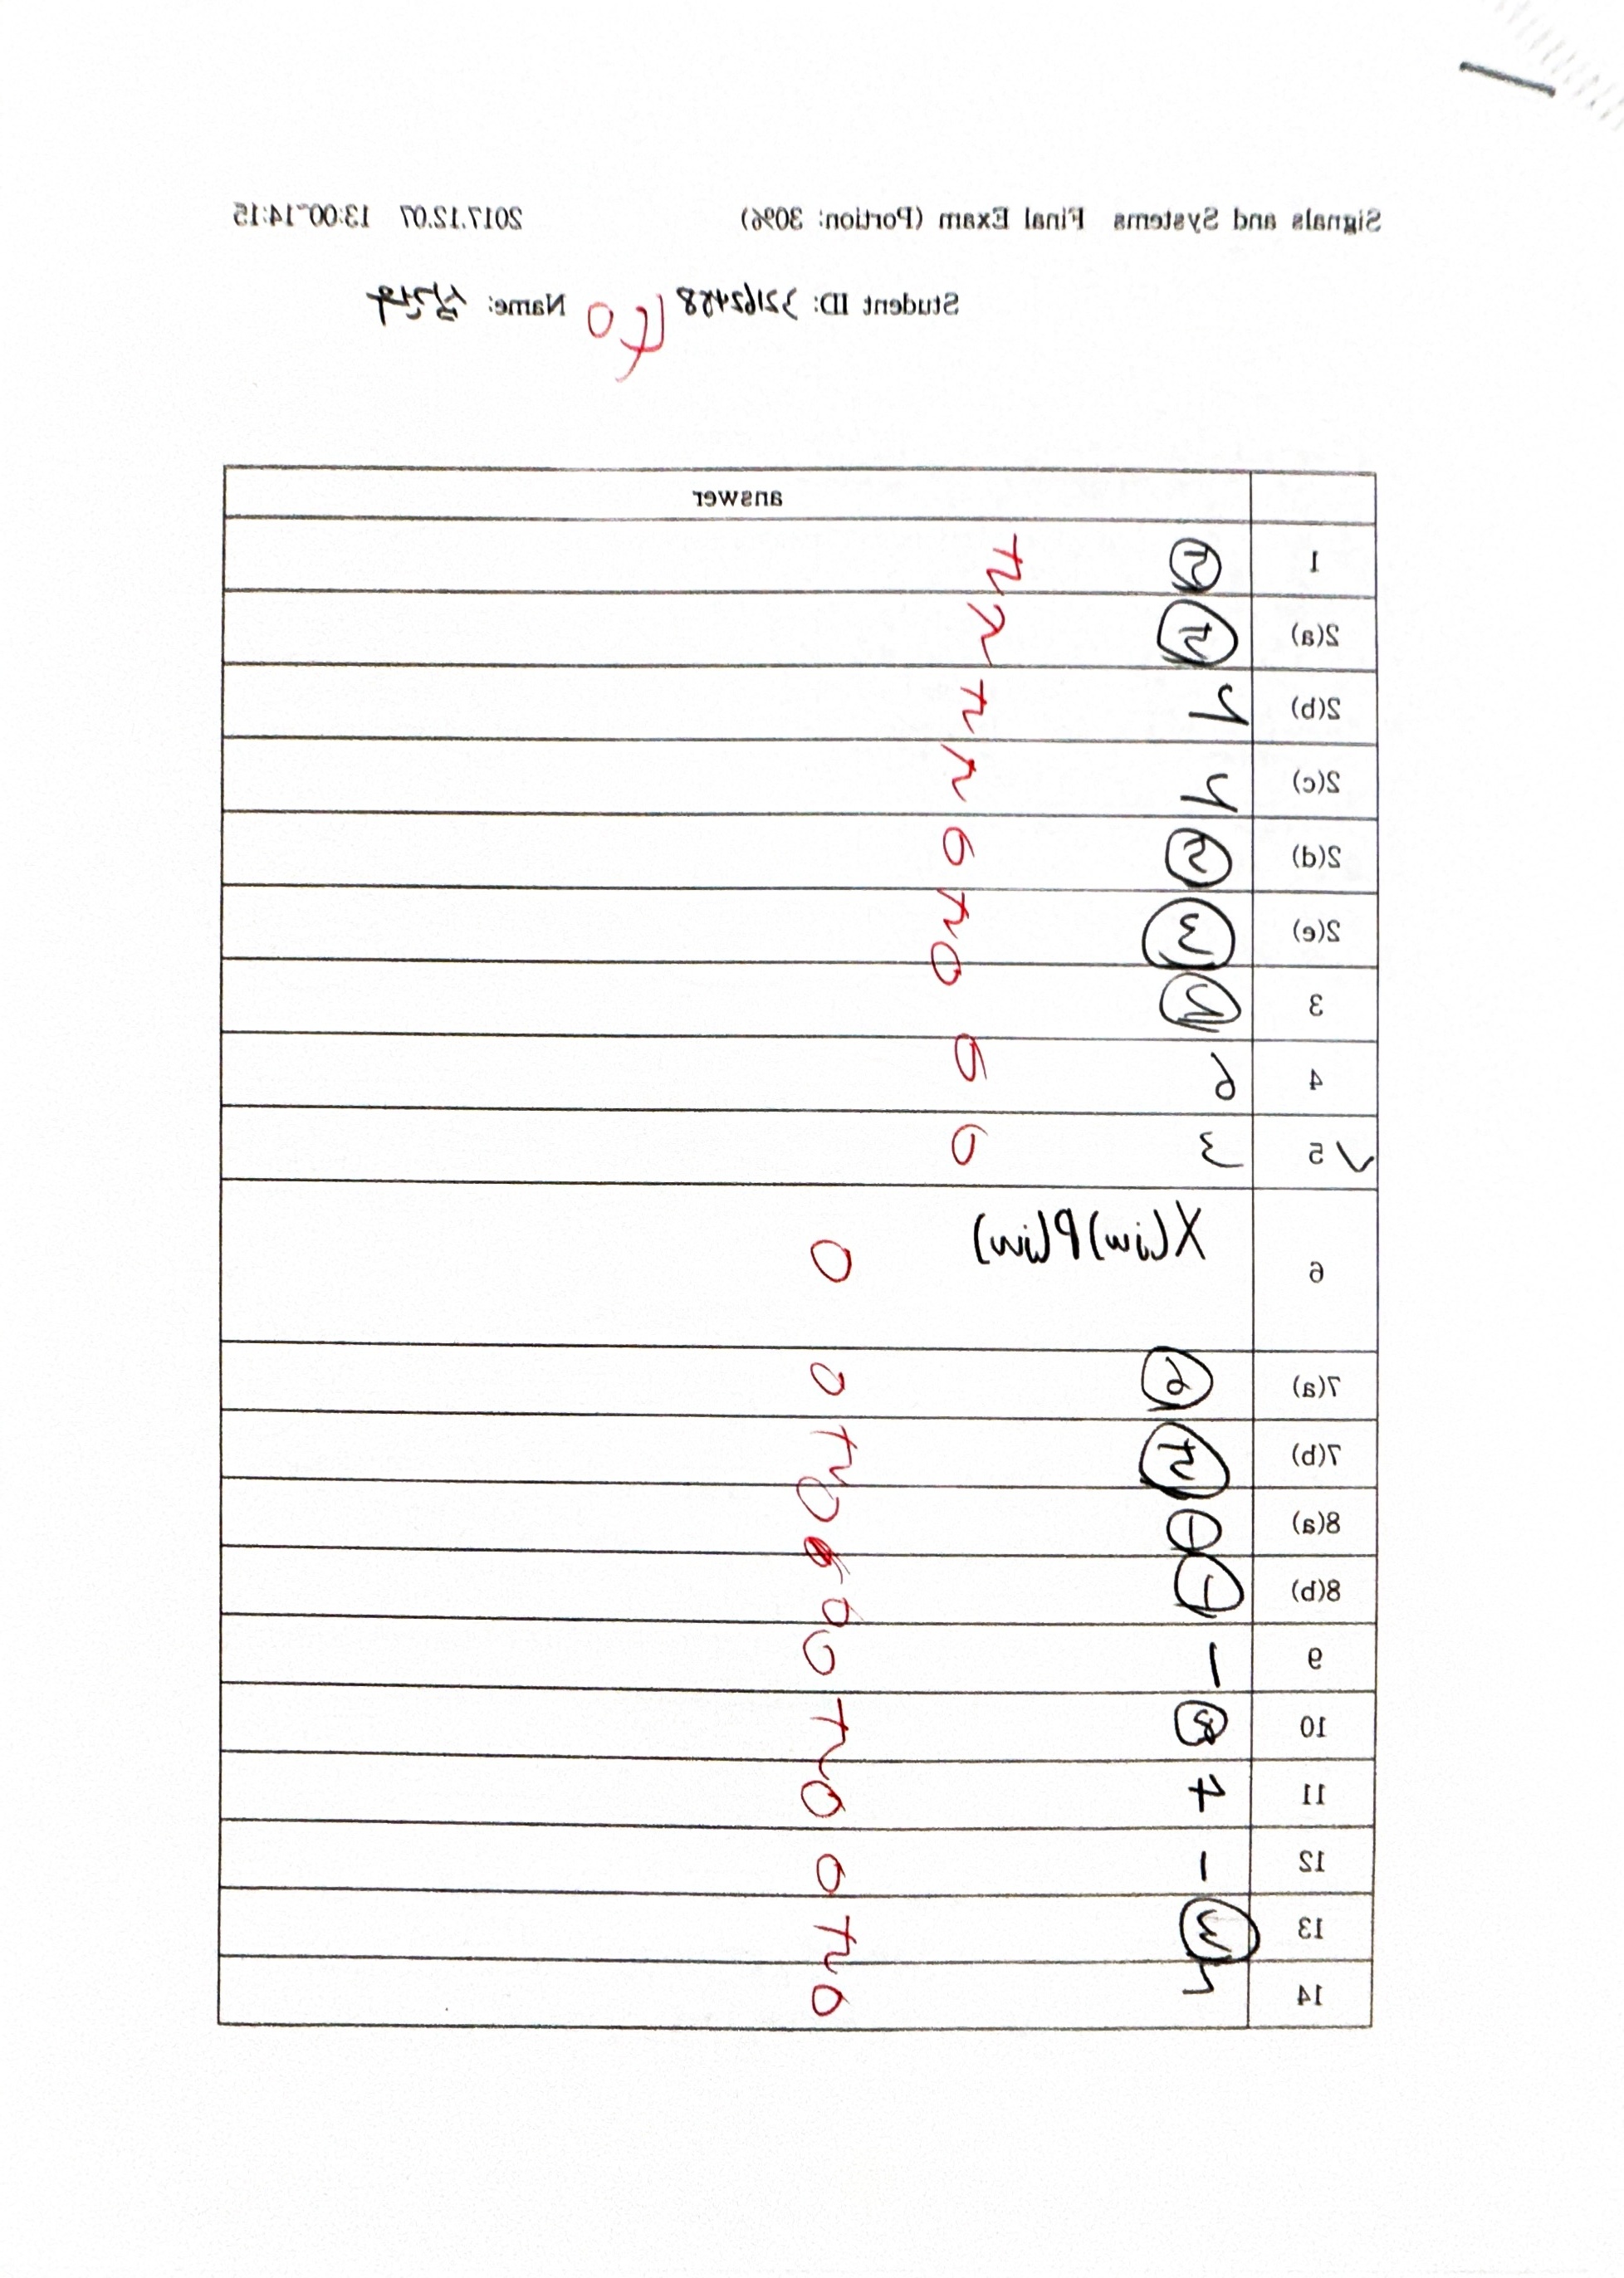 Signals and Systems Final Exam (Portion: 30%) 2017.12.07 13:00~14:15
Student ID: 32162488 Name: 심건우
answer
1 ②
2(a) ⑤
2(b) 4
2(c) 4
2(d) ②
2(e) ③
3 ④
4 6
5 3
6 X(jw)P(jw)
7(a) ⑥
7(b) ⑤
8(a) ①
8(b) ①
9 1
10 ⑧
11 7
12 1
13 ③
14 5